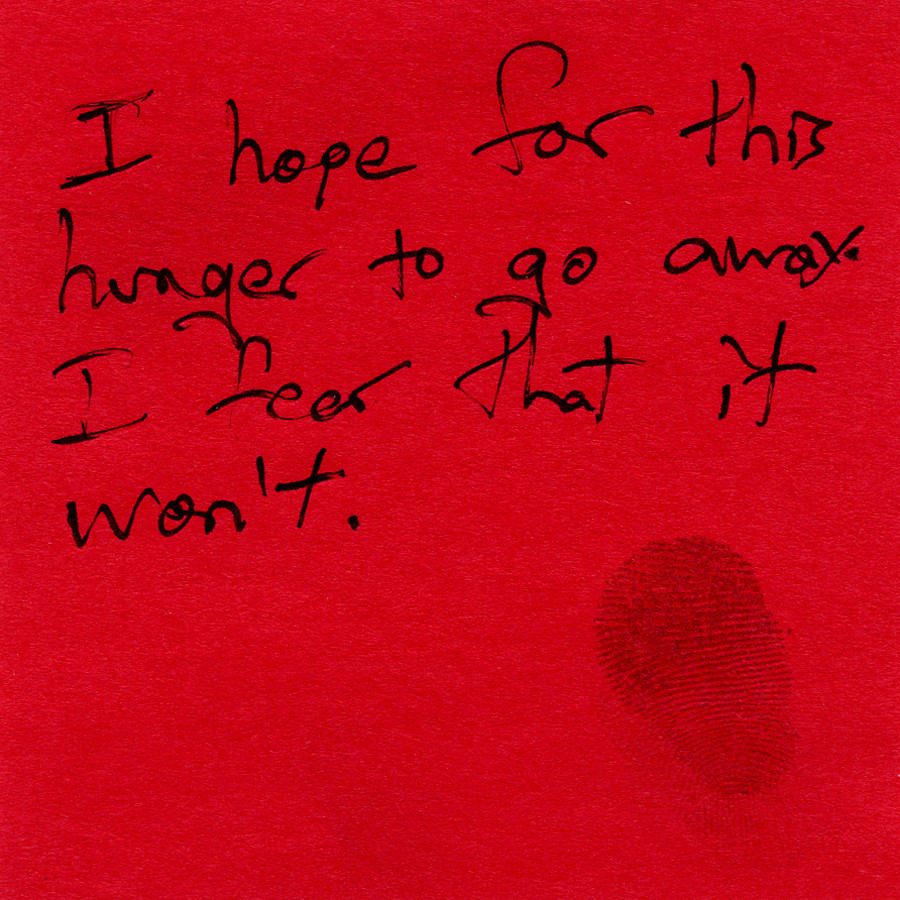 I hope for this
hunger to go away.
I fear that it
won't.